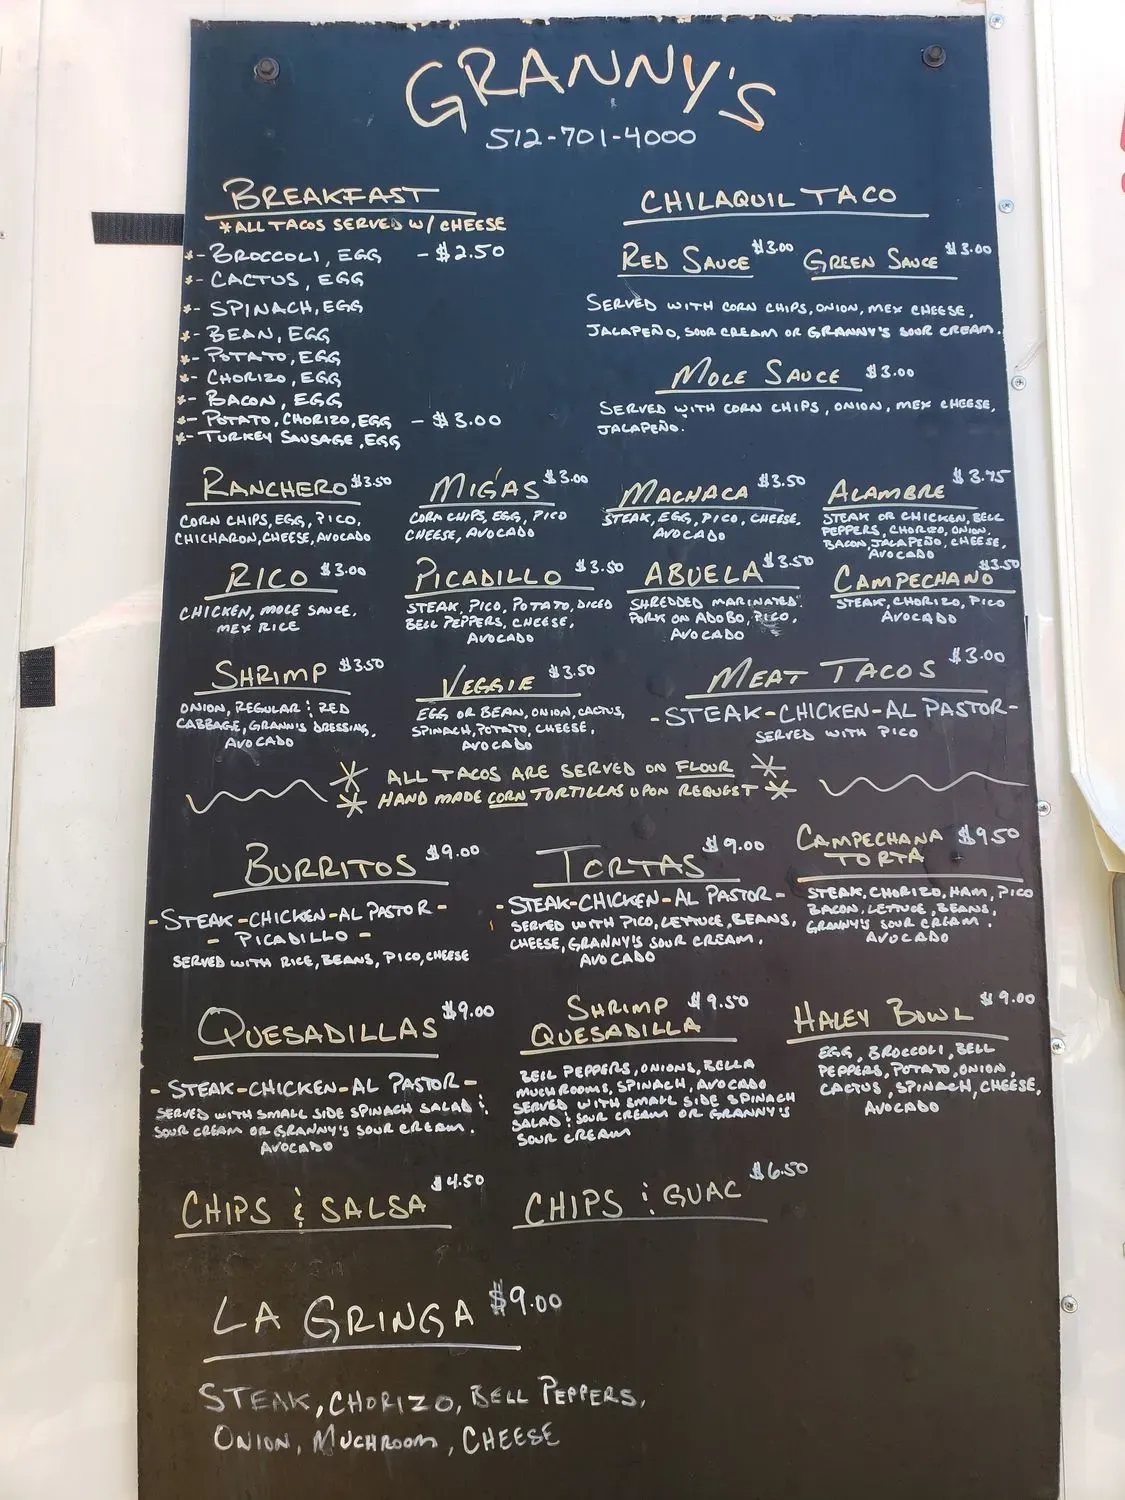 GRANNY'S
512-701-4000
BREAKFAST
*ALL TACOS SERVED W/ CHEESE
*- BROCCOLI, EGG - $2.50
*- CACTUS, EGG
*- SPINACH, EGG
*- BEAN, EGG
*- POTATO, EGG
*- CHORIZO, EGG
*- BACON, EGG
*- POTATO, CHORIZO, EGG - $3.00
*- TURKEY SAUSAGE, EGG
CHILAQUIL TACO
RED SAUCE $3.00 GREEN SAUCE $3.00
SERVED WITH CORN CHIPS, ONION, MEX CHEESE,
JALAPEÑO, SOUR CREAM OR GRANNY'S SOUR CREAM.
MOLE SAUCE $3.00
SERVED WITH CORN CHIPS, ONION, MEX CHEESE,
JALAPEÑO.
RANCHERO $3.50
CORN CHIPS, EGG, PICO,
CHICHARON, CHEESE, AVOCADO
MIGAS $3.00
CORN CHIPS, EGG, PICO
CHEESE, AVOCADO
MACHACA $3.50
STEAK, EGG, PICO, CHEESE,
AVOCADO
ALAMBRE $3.75
STEAK OR CHICKEN, BELL
PEPPERS, CHORIZO, ONION,
BACON, JALAPEÑO, CHEESE,
AVOCADO
RICO $3.00
CHICKEN, MOLE SAUCE,
MEX RICE
PICADILLO $3.50
STEAK, PICO, POTATO, DICED
BELL PEPPERS, CHEESE,
AVOCADO
ABUELA $3.50
SHREDDED MARINATED
PORK ON ADOBO, PICO,
AVOCADO
CAMPECHANO $3.50
STEAK, CHORIZO, PICO
AVOCADO
SHRIMP $3.50
ONION, REGULAR & RED
CABBAGE, GRANN'S DRESSING,
AVOCADO
VEGGIE $3.50
EGG OR BEAN, ONION, CACTUS,
SPINACH, POTATO, CHEESE,
AVOCADO
MEAT TACOS $3.00
-STEAK-CHICKEN-AL PASTOR-
SERVED WITH PICO
* ALL TACOS ARE SERVED ON FLOUR *
* HAND MADE CORN TORTILLAS UPON REQUEST *
BURRITOS $9.00
-STEAK-CHICKEN-AL PASTOR-
- PICADILLO -
SERVED WITH RICE, BEANS, PICO, CHEESE
TORTAS $9.00
-STEAK-CHICKEN-AL PASTOR-
SERVED WITH PICO, LETTUCE, BEANS,
CHEESE, GRANNY'S SOUR CREAM.
AVOCADO
CAMPECHANA $9.50
TORTA
STEAK, CHORIZO, HAM, PICO
BACON, LETTUCE, BEANS,
GRANNY'S SOUR CREAM.
AVOCADO
QUESADILLAS $9.00
-STEAK-CHICKEN-AL PASTOR-
SERVED WITH SMALL SIDE SPINACH SALAD &
SOUR CREAM OR GRANNY'S SOUR CREAM.
AVOCADO
SHRIMP $9.50
QUESADILLA
BELL PEPPERS, ONIONS, BELLA
MUCHROOMS, SPINACH, AVOCADO
SERVED WITH SMALL SIDE SPINACH
SALAD & SOUR CREAM OR GRANNY'S
SOUR CREAM
HALEY BOWL $9.00
EGG, BROCCOLI, BELL
PEPPERS, POTATO, ONION,
CACTUS, SPINACH, CHEESE,
AVOCADO
CHIPS & SALSA $4.50
CHIPS & GUAC $6.50
LA GRINGA $9.00
STEAK, CHORIZO, BELL PEPPERS,
ONION, MUCHROOM, CHEESE